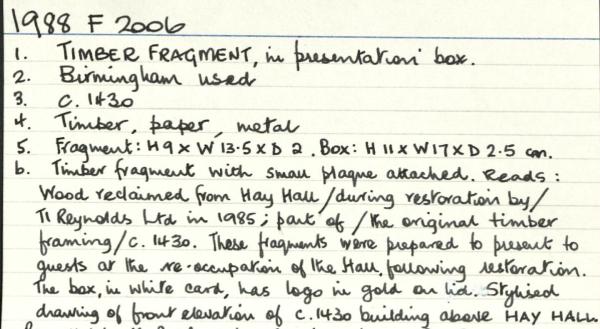 1988 F 2006
1. TIMBER FRAGMENT, in presentation box.
2. Birmingham used
3. c. 1430
4. Timber, paper, metal
5. Fragment: H 9 x W 13.5 x D 2. Box: H 11 x W 17 x D 2.5 cm.
6. Timber fragment with small plaque attached. Reads:
Wood reclaimed from Hay Hall/during restoration by/
TI Reynolds Ltd in 1985; part of/the original timber
framing/c. 1430. These fragments were prepared to present to
guests at the re-occupation of the Hall, following restoration.
The box, in white card, has logo in gold on lid. Stylised
drawing of front elevation of c.1430 building above HAY HALL